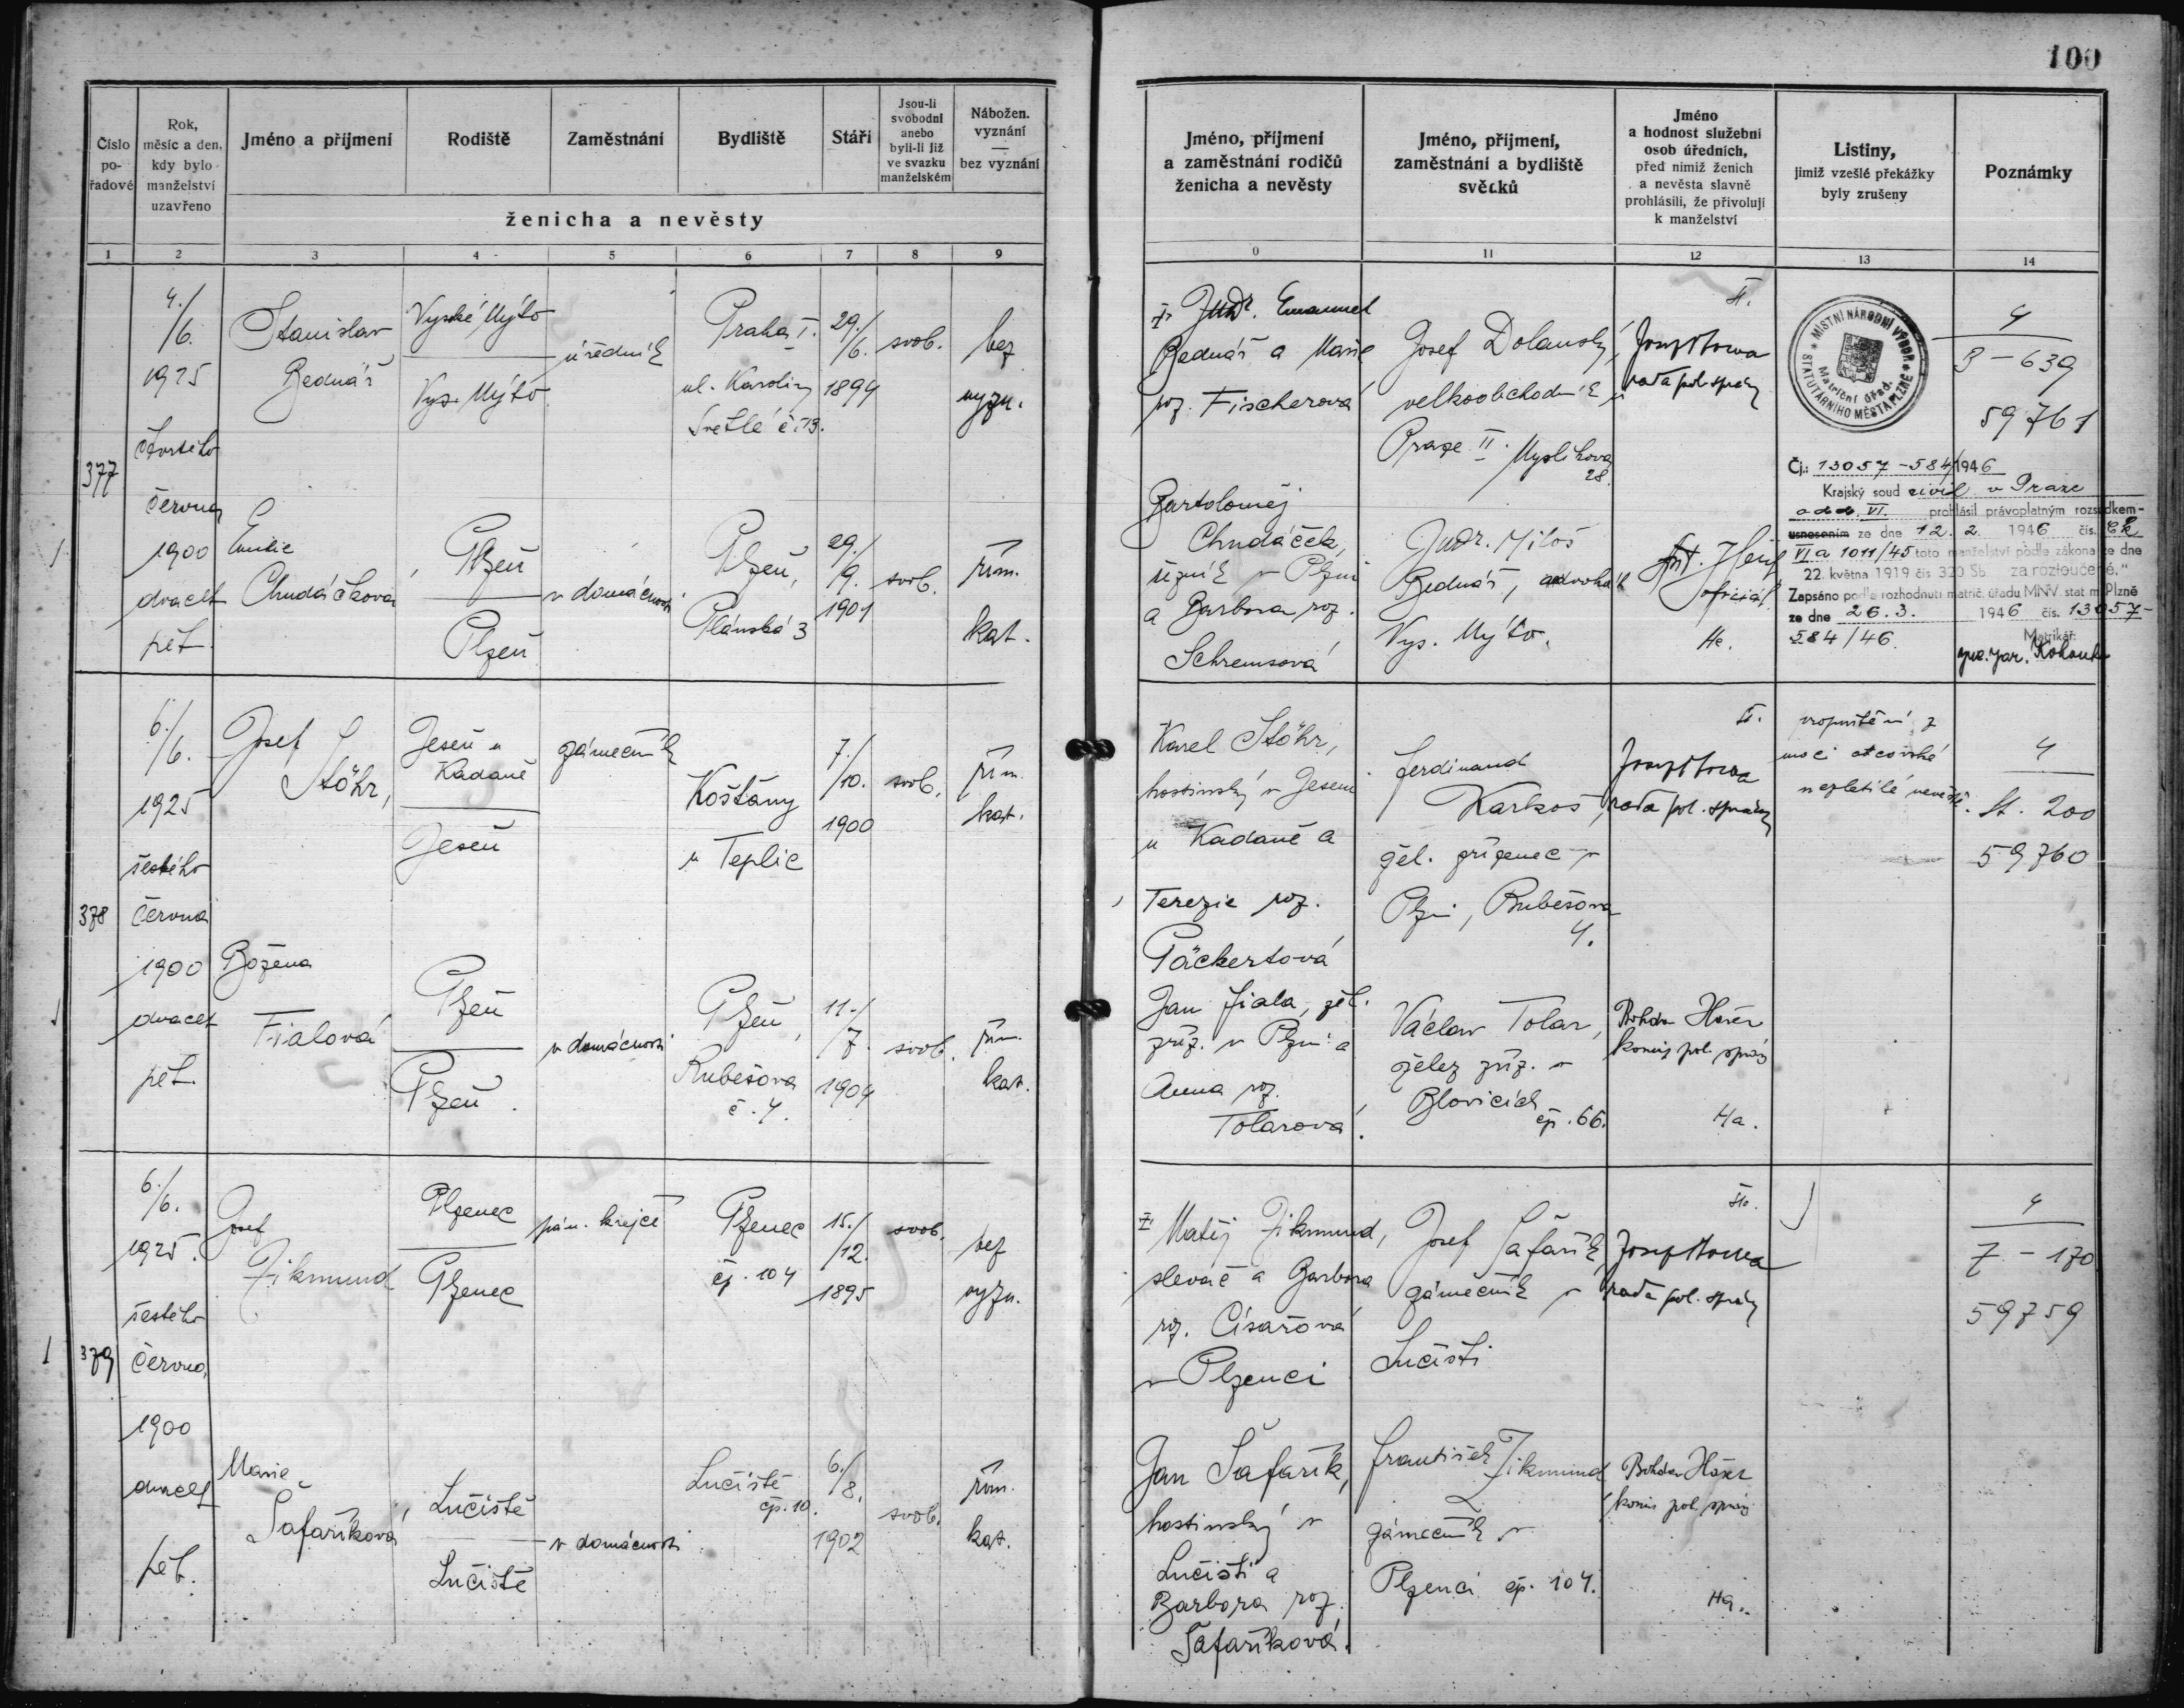 100
Číslo
po-
řadové
Rok,
měsíc a den,
kdy bylo
manželství
uzavřeno
Jméno a přijmení
Rodiště
Zaměstnání
Bydliště
Stáří
Jsou-li
svobodní
anebo
byli-li již
ve svazku
manželském
Nábožen.
vyznání
—
bez vyznání
ženicha a nevěsty
1 2 3 4 5 6 7 8 9
Jméno, přijmení
a zaměstnání rodičů
ženicha a nevěsty
Jméno, přijmení,
zaměstnání a bydliště
svědků
Jméno
a hodnost služební
osob úředních,
před nimiž ženich
a nevěsta slavně
prohlásili, že přivolují
k manželství
Listiny,
jimiž vzešlé překážky
byly zrušeny
Poznámky
0 11 12 13 14
377
4./
/6.
1925
čtvrtého
června
1900
dvacet
pět.
Stanislav
Bednář
Vysoké Mýto
Vys. Mýto
úředník
Praha I.
ul. Karoliny
Světlé č. 13.
29./
/6.
1899
svob.
bez
vyzn.
Emilie
Chudáčková
Plzeň
Plzeň
v domácnosti
Plzeň,
Plánská 3
29./
/9.
1901
svob.
řím.
kat.
Judr. Emanuel
Bednář a Marie
roz. Fischerová
Josef Dolanský,
velkoobchodník v
Praze II. Myslíkova
28.
rada pol. správy
MÍSTNÍ NÁRODNÍ VÝBOR
STATUTÁRNÍHO MĚSTA PLZNĚ
Matriční úřad.
4
B – 639
59761
Čj.: 13057-584/1946
Krajský soud civil. v Praze
odd. VI. prohlásil právoplatným rozsudkem-
usnesením ze dne 12. 2. 1946 čís. Ck
VI a 1011/45 toto manželství podle zákona ze dne
22. května 1919 čís 320 Sb za rozloučené."
Zapsáno podle rozhodnutí matrič. úřadu MNV. stat m. Plzně
ze dne 26. 3. 1946 čís. 13057-
584/46.
Matrikář:
Bartoloměj
Chudáček,
řezník v Plzni
a Barbora roz.
Schremsová
Judr. Miloš
Bednář, advokát
Vys. Mýto.
oficiál
He.
378
6./
/6.
1925
šestého
června
1900
dvacet
pět.
Josef
Stöhr,
Jeseň u
Kadaně
Jeseň
zámečník
Košťany
u Teplic
7./
/10.
1900
svob.
řím.
kat.
Božena
Fialová
Plzeň
Plzeň.
v domácnosti
Plzeň,
Rubešova
č. 4.
11./
/7.
1904
svob.
řím.
kat.
Karel Stöhr,
hostinský v Jeseni
u Kadaně a
Terezie roz.
Päckertová
Ferdinand
Karkoš,
žel. zřízenec v
Plzni, Rubešova
4.
rada pol. správy
propuštění z
moci otcovské
nezletilé nevěstě.
4
St. 200
59760
Jan Fiala, žel.
zříz. v Plzni a
Anna roz.
Tolarová.
Václav Tolar,
želez. zříz. v
Blovicích
čp. 66.
Bohdan
komis. pol. správy
Ha.
379
6./
/6.
1925.
šestého
června
1900
dvacet
pět.
Josef
Zikmund
Plzenec
Plzenec
pán. krejčí
Plzenec
čp. 104
15./
/12.
1895
svob.
bez
vyzn.
Marie
Šafaříková
Lučiště
Lučiště
v domácnosti
Lučiště
čp. 10.
6./
/8.
1902
svob.
řím.
kat.
Matěj Zikmund,
slevač a Barbora
roz. Císařová
v Plzenci
Josef Šafařík,
zámečník v
Lučišti
rada pol. správy
4
Z – 170
59759
Jan Šafařík,
hostinský v
Lučišti a
Barbora roz.
Šafaříková.
František Zikmund
zámečník v
Plzenci čp. 104.
Bohdan
komis pol. správy
Ha.